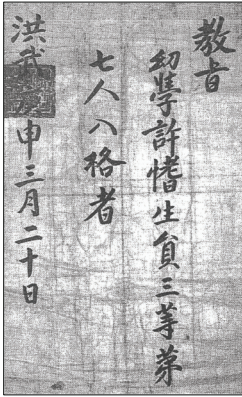 教旨
幼學許愭生員三等第
七人入格者
洪武 申三月二十日